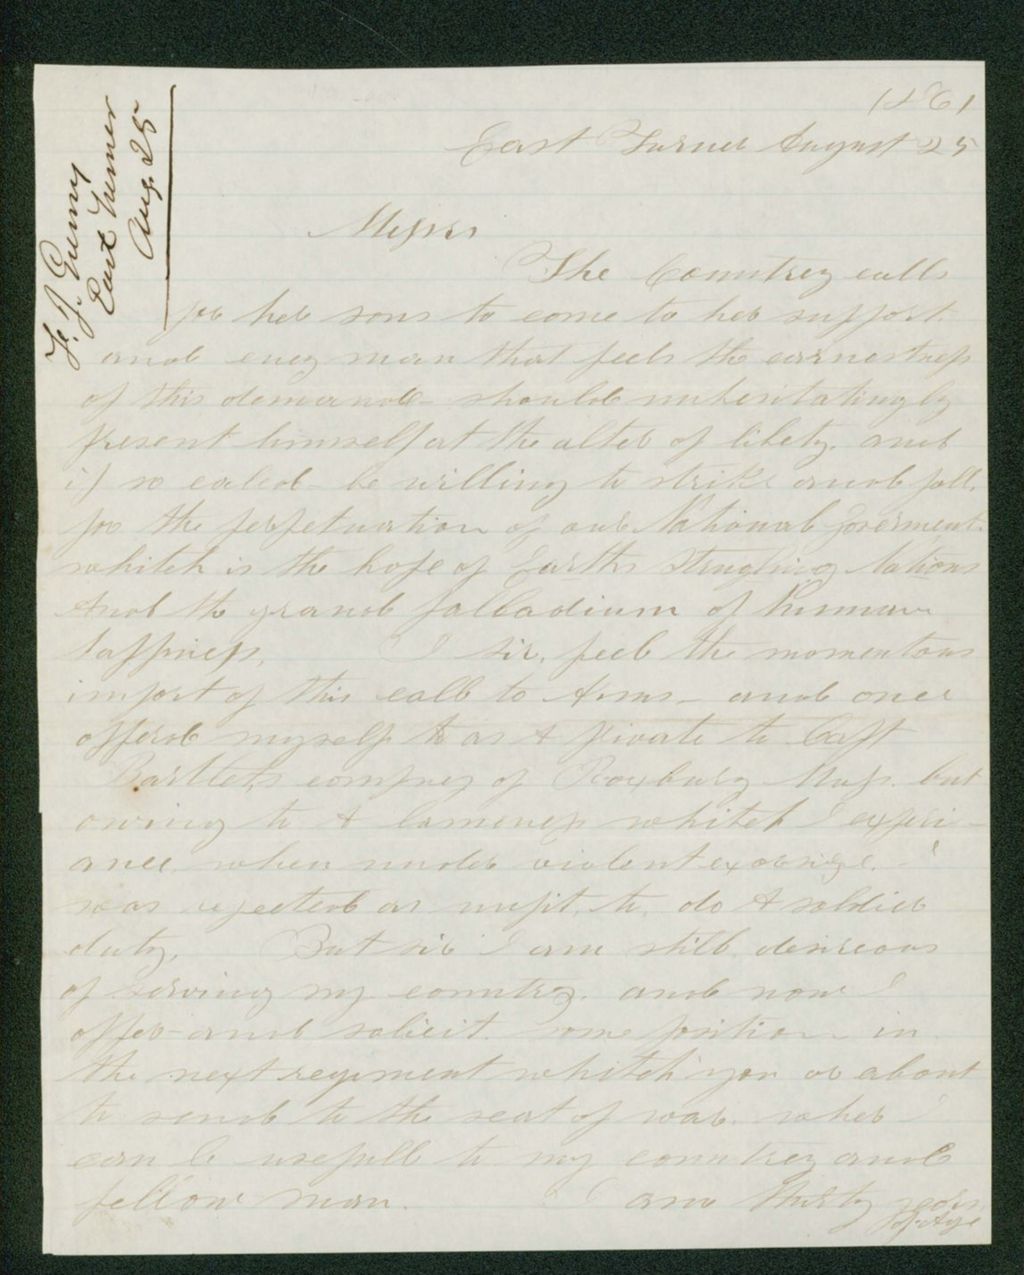 East Turner
Aug. 25
1861
East Turner August 25
Messrs
The Countrey calls
for her sons to come to her support.
and evey man that feels the earnestness
of this demand - should unhesitatingly
present himself at the alter of libety. and
if so caled - be willing to strike and fall.
for the perpetuation of our National Goverment
whitch is the hope of Earths Strugling Nations
And the grand palladium of human
happiness. I sir, feel the momentous
import of this call to Arms - and once
offerd myself as A private to Capt
Bartlets compney of Roxbury Mass. but
owing to A lameness whitch I experi-
ance when under violent excersize. I
was rejected as unfit to do A soldier
duty, But sir I am still desireous
of serving my countrey. and now I
offer and solicit some position in
the next regiment whitch you ar about
to send to the seat of war. wher I
can be usefull to my countrey and
fellow man. I am thirty years
of Age